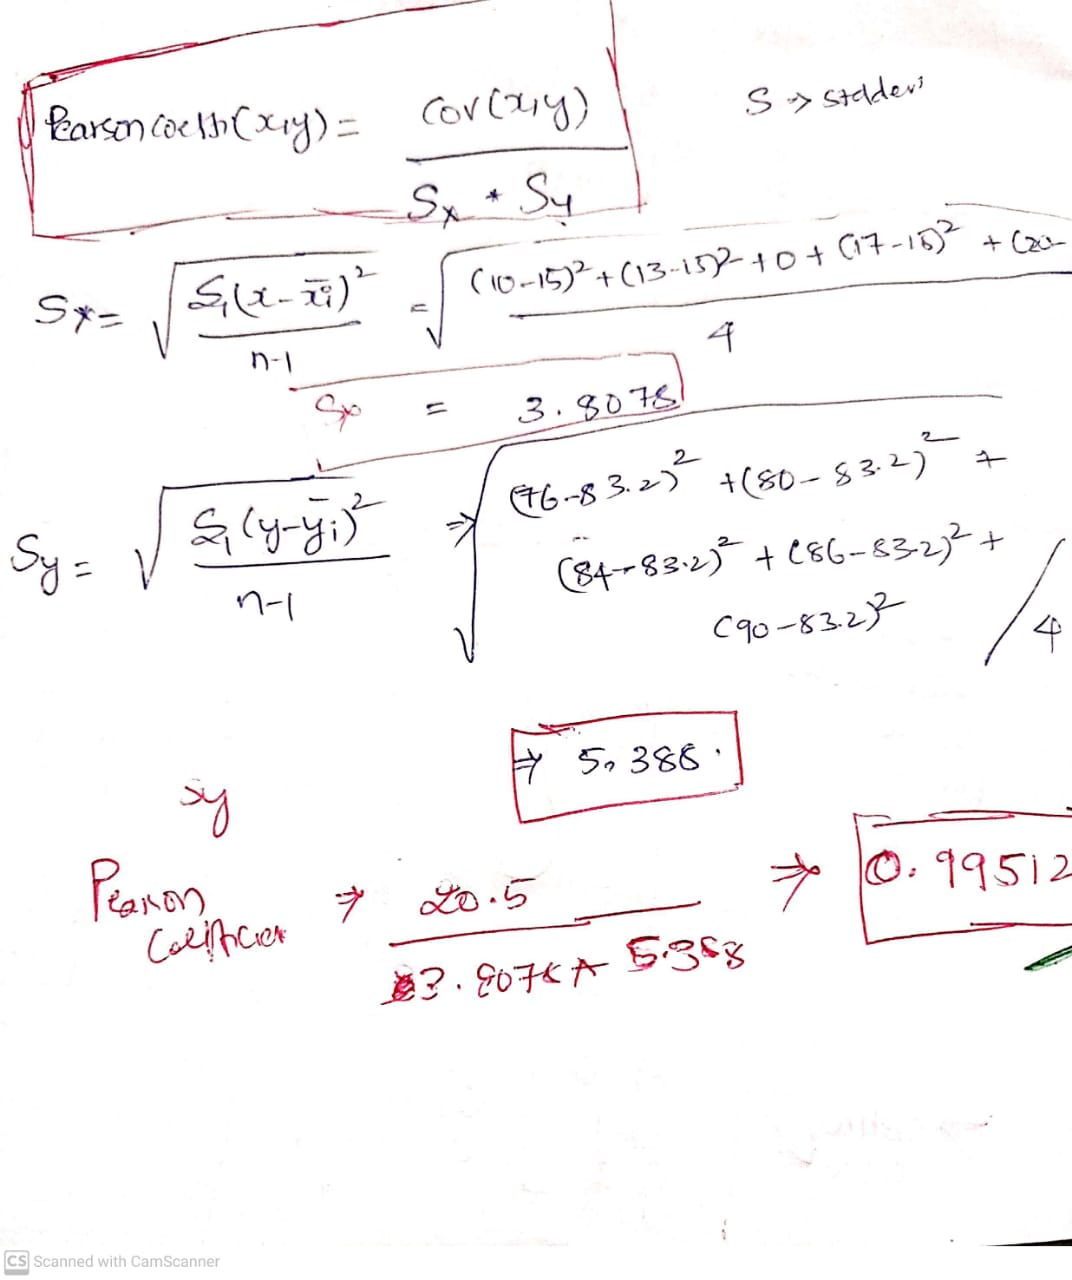 Pearson coeff(x,y) = cov(x,y) / Sx * Sy
S → stddevi
Sx = √(Σ(x-x̄i)² / n-1) = √((10-15)² + (13-15)² + 0 + (17-15)² + (20- / 4)
Sx = 3.8078
Sy = √(Σ(y-ȳi)² / n-1) ⇒ √((76-83.2)² + (80-83.2)² +
(84-83.2)² + (86-83.2)² +
(90-83.2)² / 4
⇒ 5.388.
Sy
Pearson
⇒ 20.5 / 3.8078 * 5.388 ⇒ 0.99512
CS Scanned with CamScanner